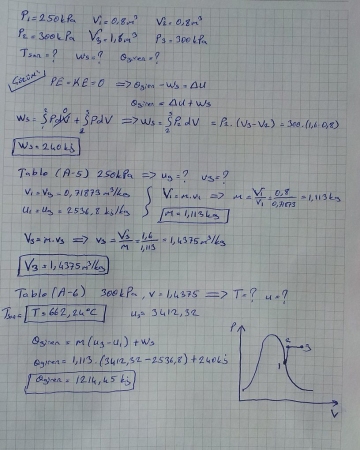 P₁=250kPa V₁=0,8m³ V₂=0,8m³
P₂=300kPa V₃=1,6m³ P₃=300kPa
Tson=? Ws=? Qgiren=?
PE=KE=0 ⇒ Qgiren - Ws = ΔU
Qgiren = ΔU + Ws
Ws = ∫₁² PdV⁰ + ∫₂³ PdV ⇒ Ws = ∫₂³ P₂dV = P₂.(V₃-V₂) = 300.(1,6-0,8)
Ws = 240kj
Table (A-5) 250kPa ⇒ ug=? vg=?
v₁=vg=0,71873 m³/kg } V₁=m.v₁ ⇒ m=V₁/v₁=0,8/0,71873=1,113kg
u₁=ug=2536,8 kj/kg m=1,113kg
V₃=m.v₃ ⇒ v₃=V₃/m=1,6/1,113=1,4375m³/kg
v₃=1,4375m³/kg
Table (A-6) 300kPa, v=1,4375 ⇒ T=? u=?
Tson= T=662,24°C u₃=3412,32
Qgiren = m(u₃-u₁)+Ws
Qgiren=1,113.(3412,32-2536,8)+240kj
Qgiren=1214,45 kj
P
2 3
1
V